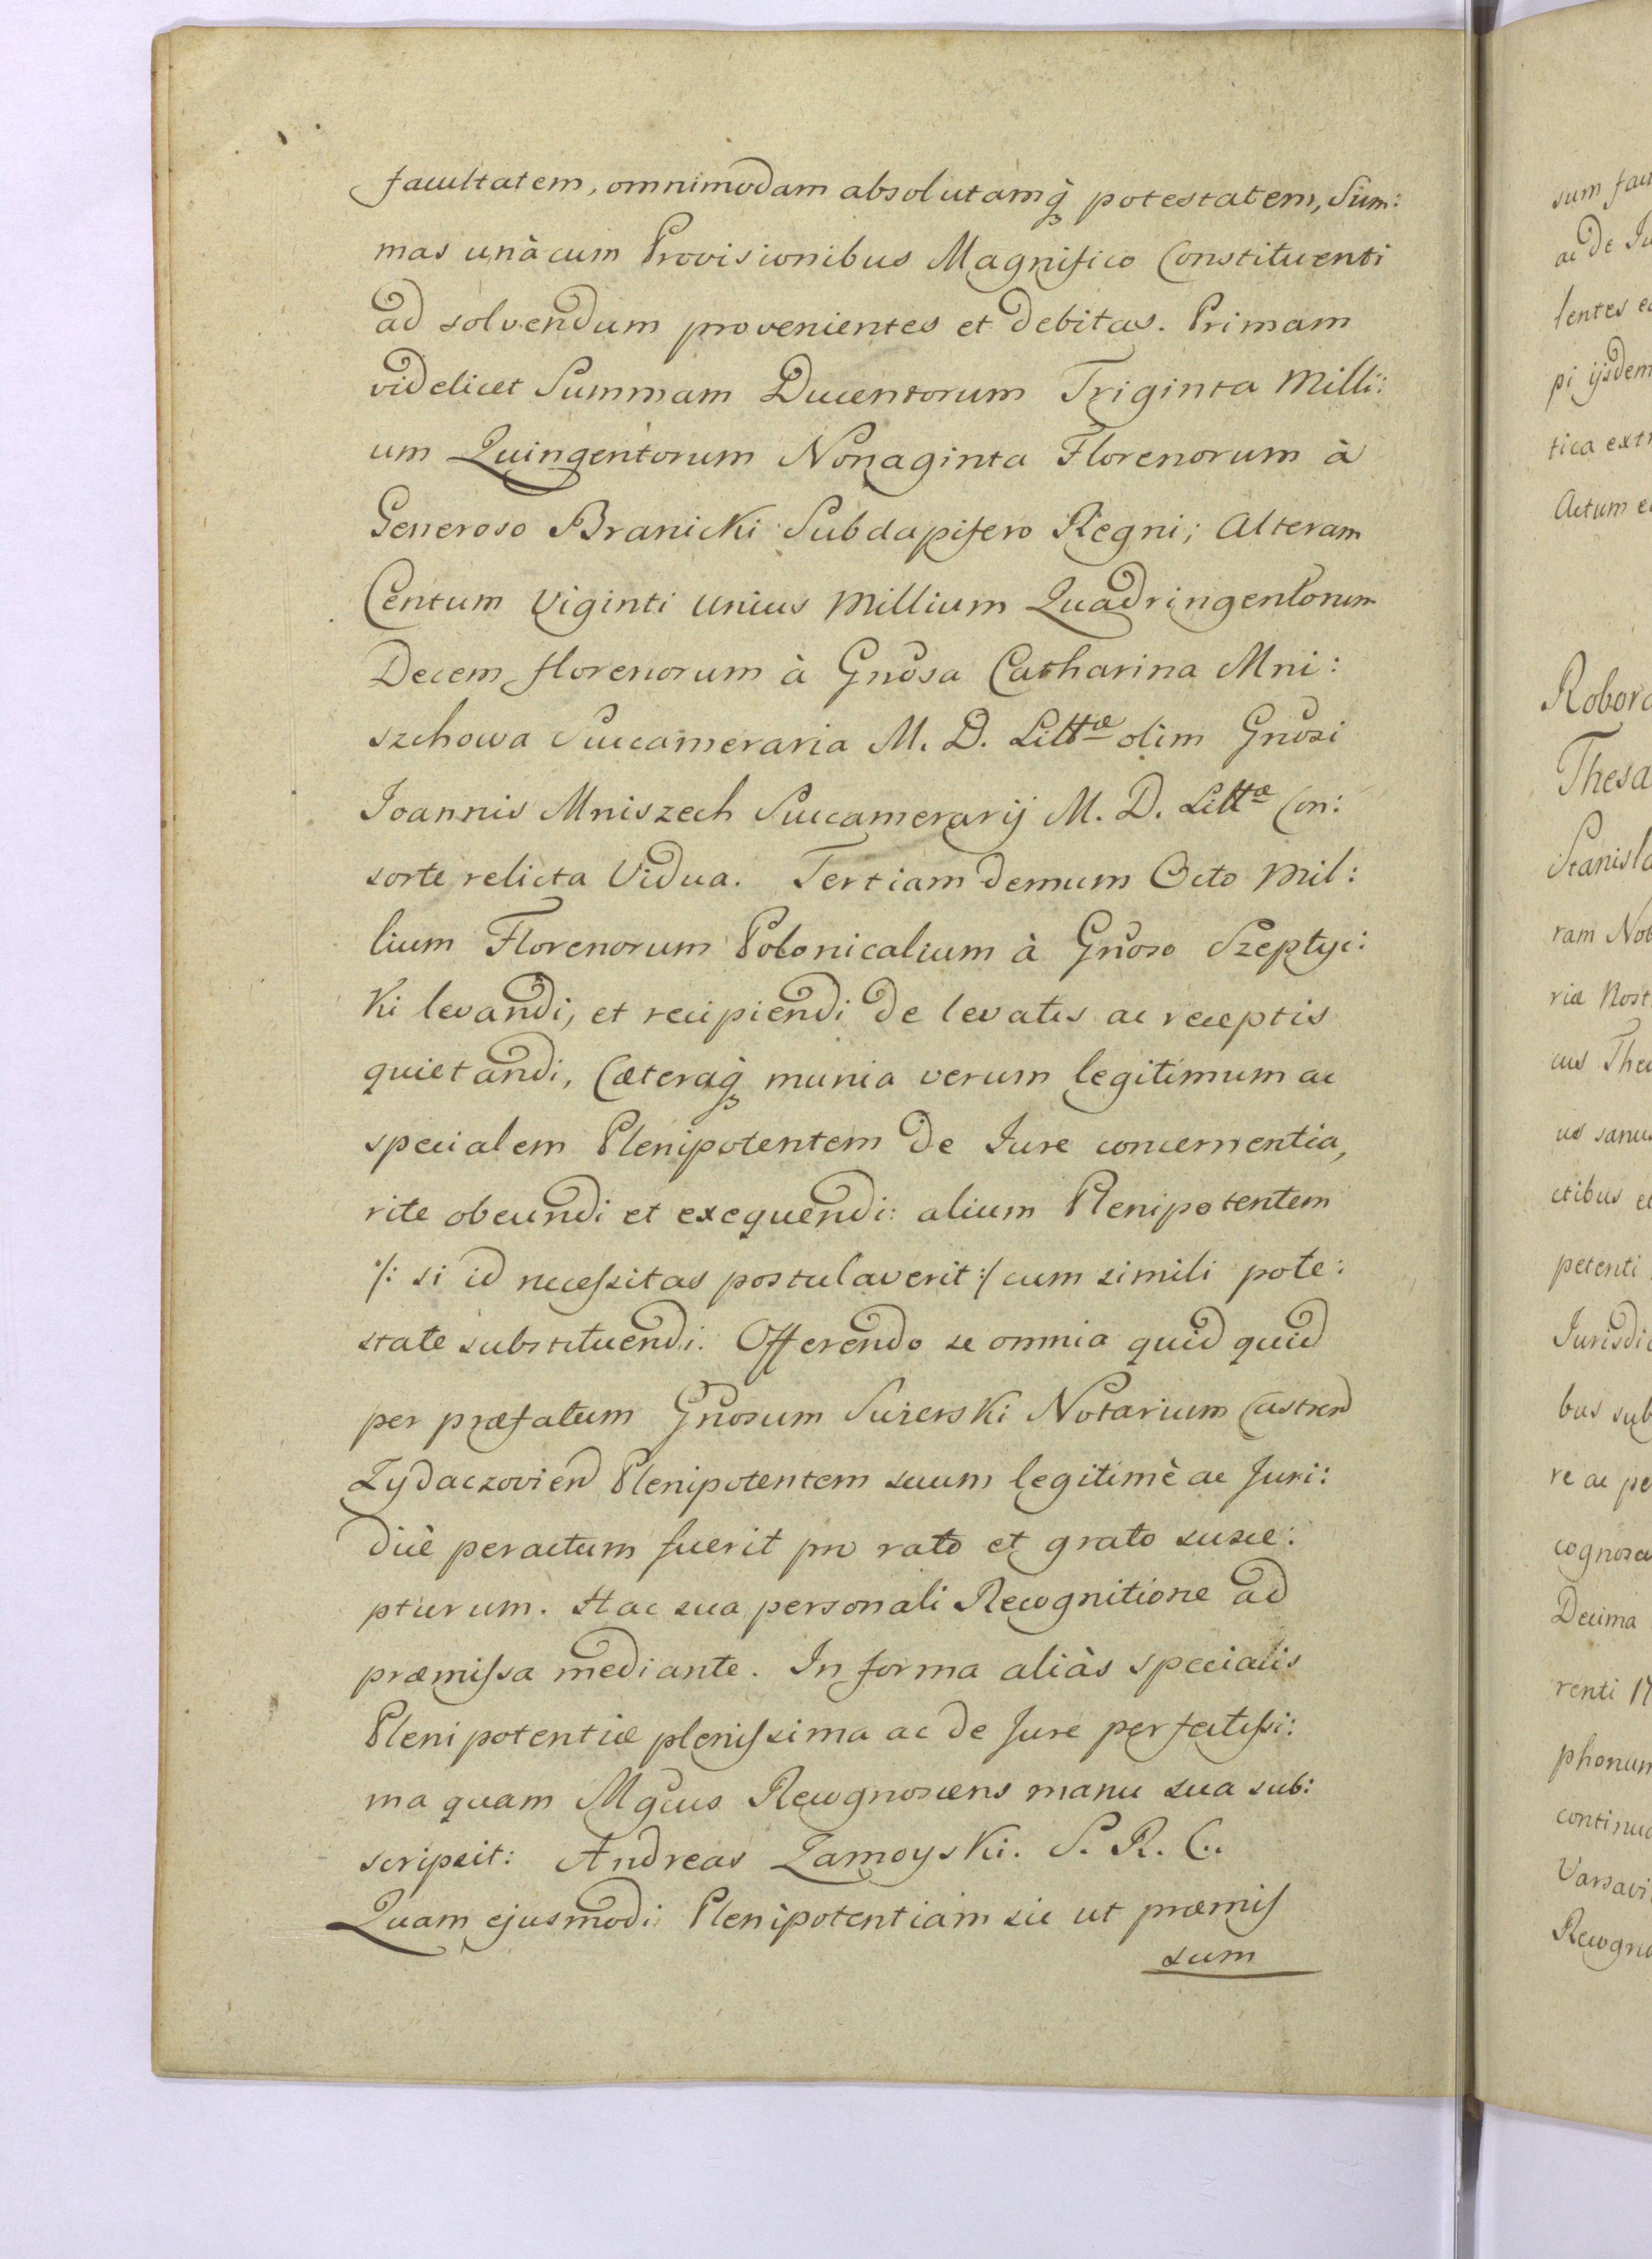 facultatem, omnimodam absolutamq̀ potestatem, Sum:
mas unà cum Provisionibus Magnifico Constituenti
ad solvendum provenientes et debitas. Primam
videlicet Summam Ducentorum Triginta Milli:
um Quingentorum Nonaginta Florenorum à
Generoso Branicki Subdapifero Regni; Alteram
Centum Viginti Unius Millium Quadringentorum
Decem florenorum à Gnosa Catharina Mni:
szchowa Succameraria M. D. Littæ olim Gnosi
Joannis Mniszech Succamerarij M. D. Littæ Con:
sorte relicta Vidua. Tertiam demum Octo Mil:
lium Florenorum Polonicalium à Gnoso Szeptyc:
ki levandi, et recipiendi de levatis ac receptis
quietandi, Cæteraq̀ munia verum legitimum ac
specialem Plenipotentem de Jure concernentia,
rite obeundi et exequendi: alium Plenipotentem
/: si id necessitas postulaverit :/ cum simili pote:
state substituendi. Offerendo se omnia quid quid
per præfatum Gnosum Suzerski Notarium Castren
Zydaczovien Plenipotentem suum legitimè ac Juri:
dicè peractum fuerit pro rato et grato susce:
pturum. Hac sua personali Recognitione ad
præmissa mediante. In forma aliàs specialis
Plenipotentiæ plenissima ac de Jure perfectissi:
ma quam Mgcus Recognoscens manu sua sub:
scripsit: Andreas Zamoyski. S. R. C.
Quam ejusmodi Plenipotentiam sic ut præmis
sum
sum
ac de
lentes
pi ijsdem
tica
Actum
Thesa
Stanisla
ram
riæ Nost
cus
us
ctibus
petenti
bus sub
re ac pe
Decima
renti 17
phonum
Varsavi
Recogno